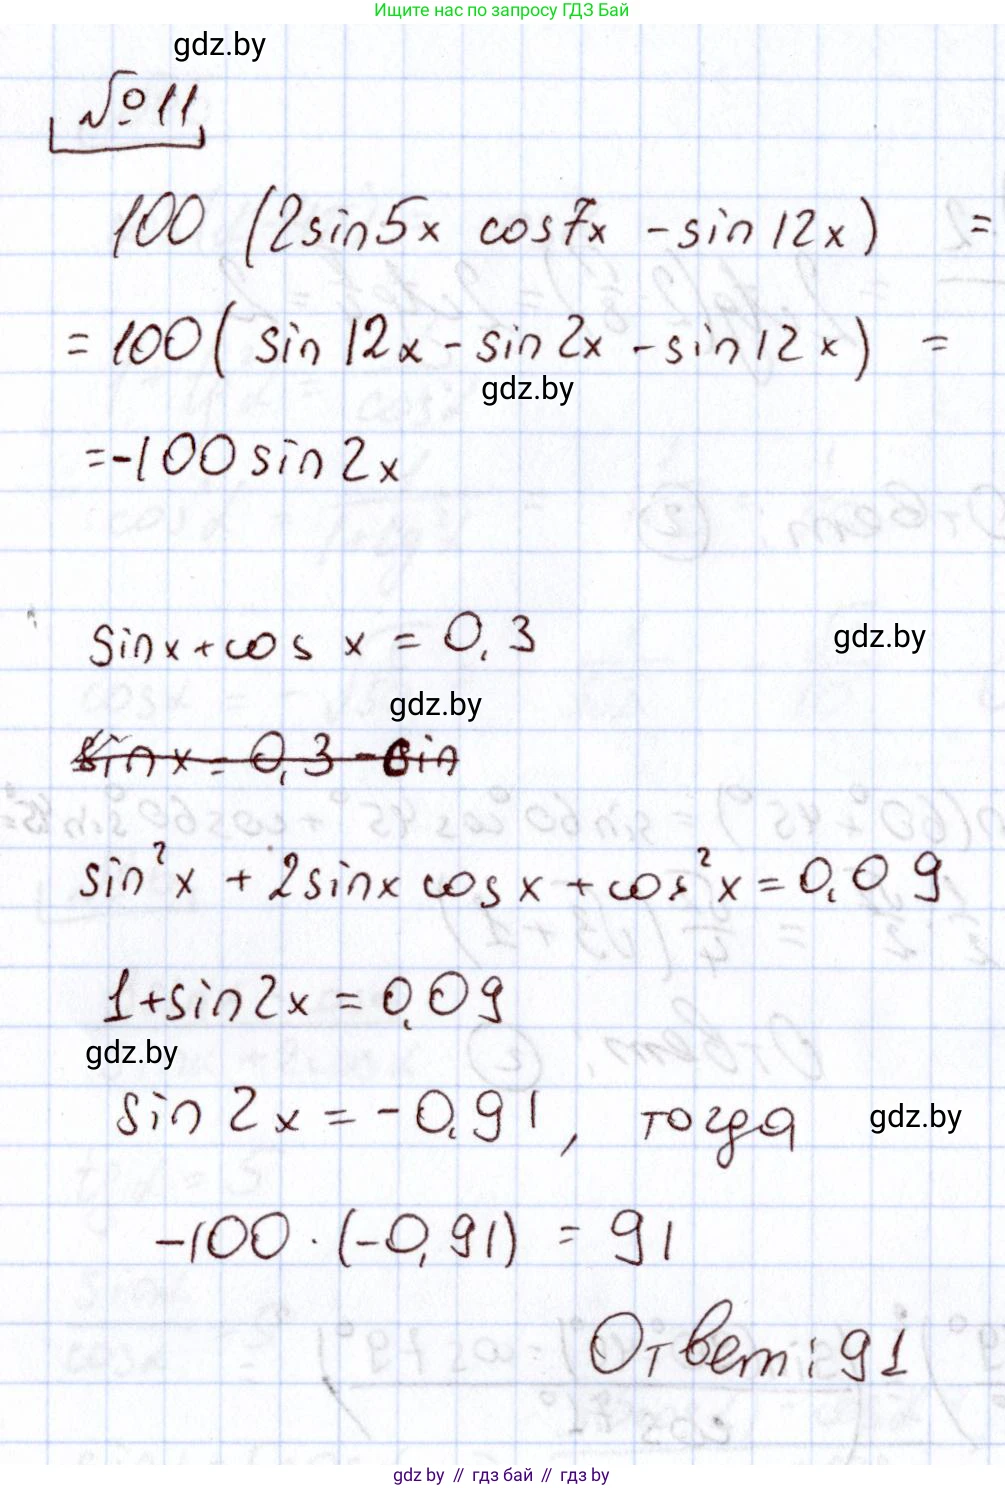 Ищите нас по запросу ГДЗ Бай
gdz.by
№11
100 (2sin5x cos7x - sin 12x) =
= 100( sin 12x - sin 2x - sin 12x) =
gdz.by
= -100 sin 2x
sinx + cos x = 0,3
gdz.by
gdz.by
sin x = 0,3 - sin
sin²x + 2sinx cosx + cos²x = 0,09
1 + sin 2x = 0,09
gdz.by
sin 2x = -0,91, тогда
gdz.by
-100 · (-0,91) = 91
Ответ: 91
gdz.by // гдз бай // гдз by